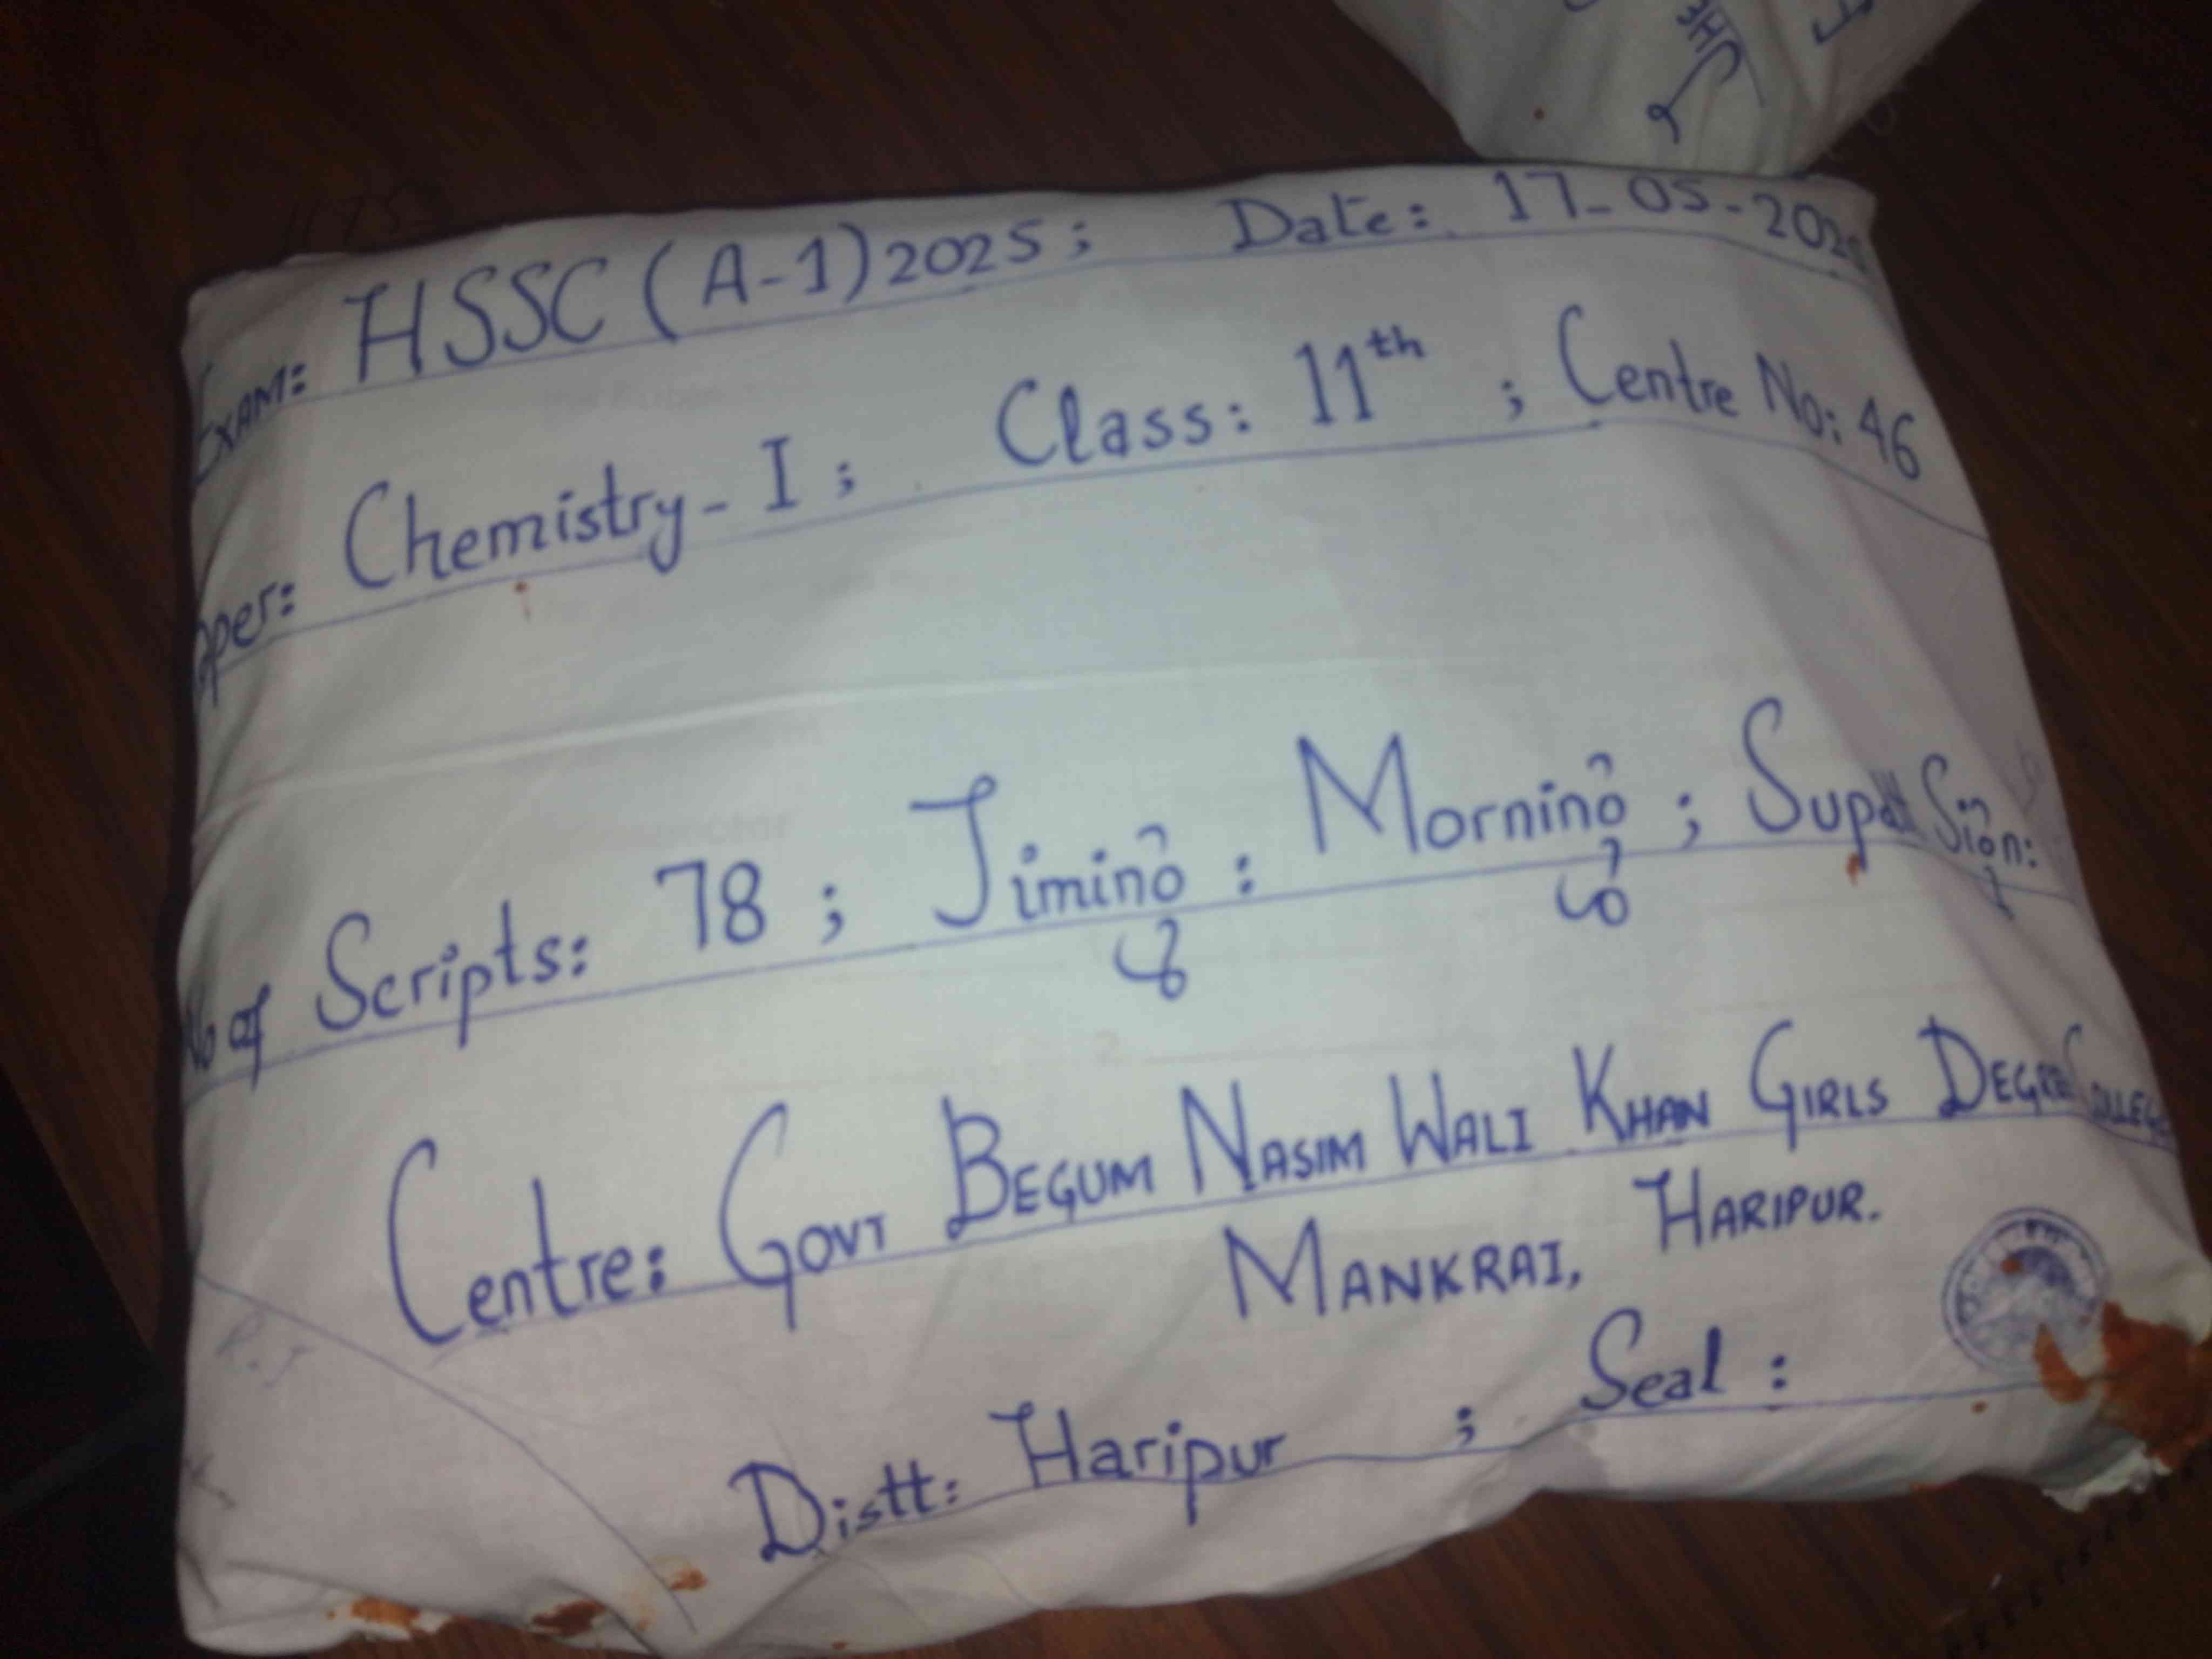 EXAM: HSSC (A-1) 2025; Date: 17-05-2025
Paper: Chemistry-I; Class: 11th; Centre No: 46
No of Scripts: 78; Timing: Morning; Supdtt Sign:
Centre: GOVT BEGUM NASIM WALI KHAN GIRLS DEGREE COLLEGE
MANKRAI, HARIPUR.
Distt: Haripur; Seal: